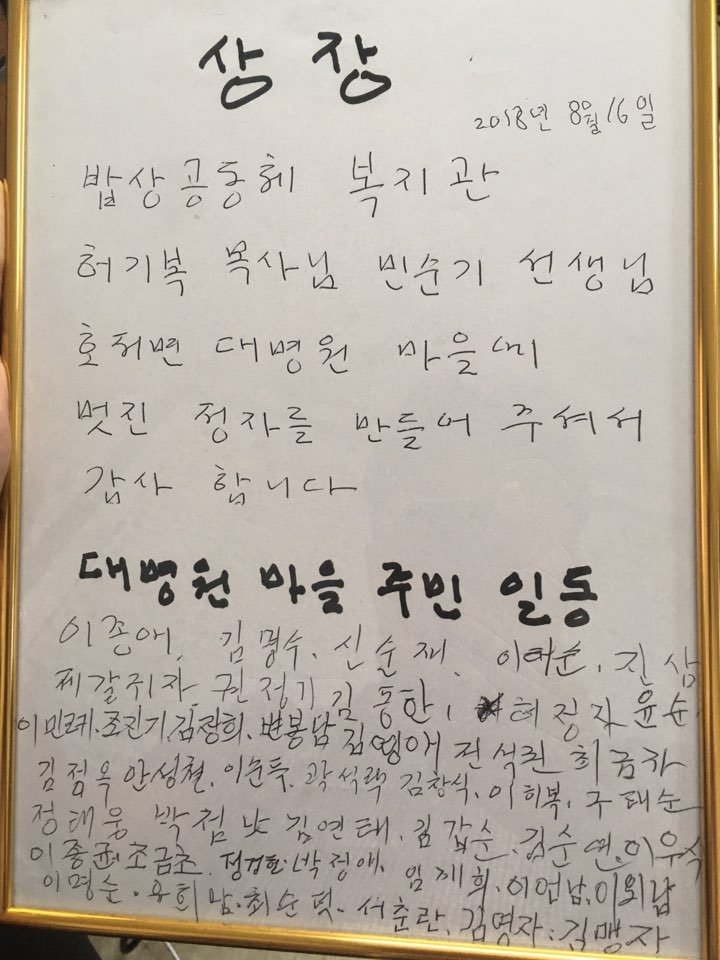 상 장
2018년 8월 16일
밥상공동체 복지관
허기복 목사님 빈순기 선생님
호저면 대병원 마을에
멋진 정자를 만들어 주셔서
감사 합니다
대병원 마을 주민 일동
이존애, 김명수, 신순재, 진삼
제갈귀자, 권정기, 김동한, 허정자 윤순
이민례, 조진기, 김장희, 변봉남 김영애 전석권 최금자
김점옥 안성철, 이순득, 곽석락 김창식, 이희복, 구태순
정태웅 김연태, 김갑순, 김순연, 이우식
이종균, 조금초, 정경환, 박정애, 임재희, 이언남, 이외남
이명순, 최순덕, 서춘란, 김영자, 김맹자